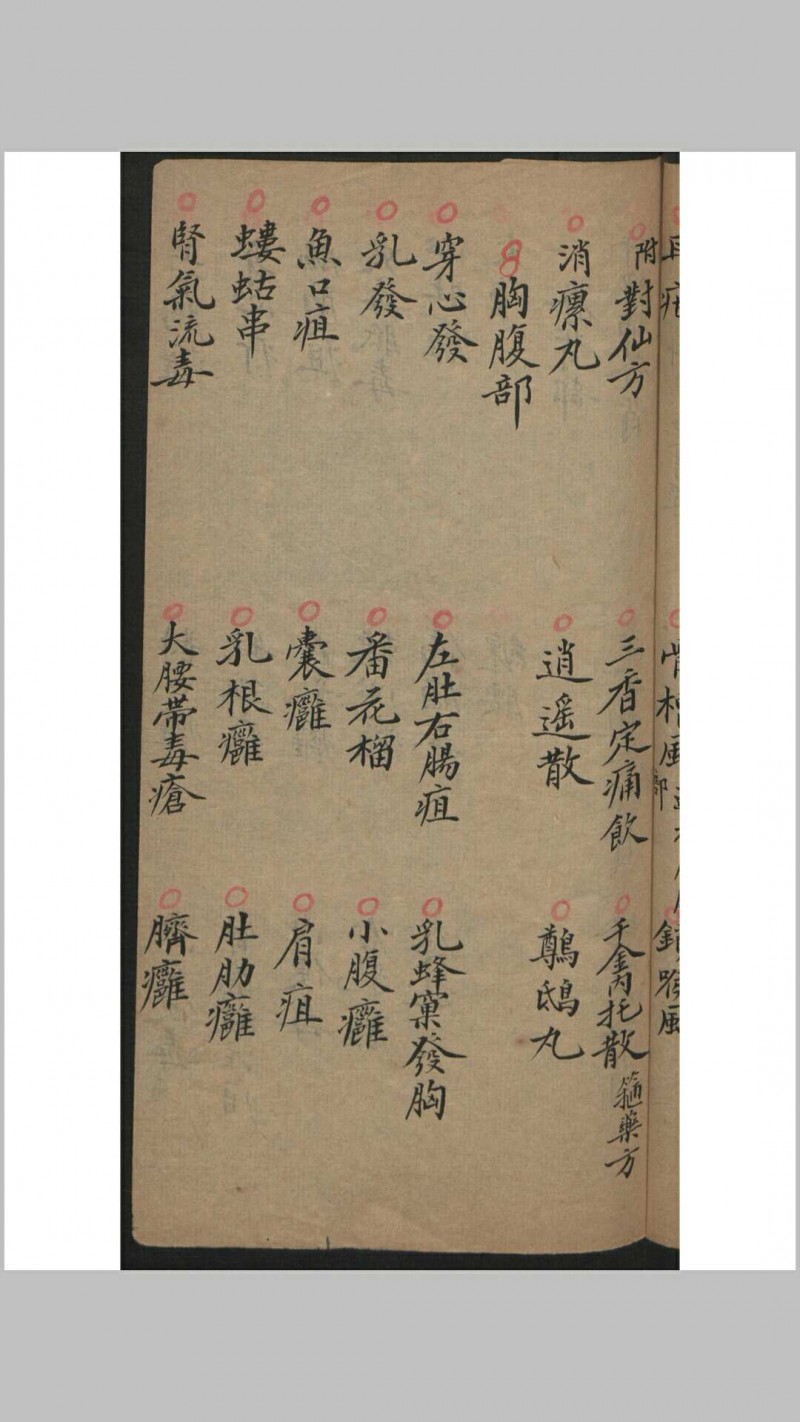 附對仙方 三香定痛飲 千金內托散 箍藥方
消瘰丸 逍遙散 鷓鴣丸
胸腹部
穿心發 左肚右腸疽 乳蜂窠發胸
乳發 番花榴 小腹癰
魚口疽 囊癰 肩疽
螻蛄串 乳根癰 肚肋癰
腎氣流毒 大腰帶毒瘡 臍癰